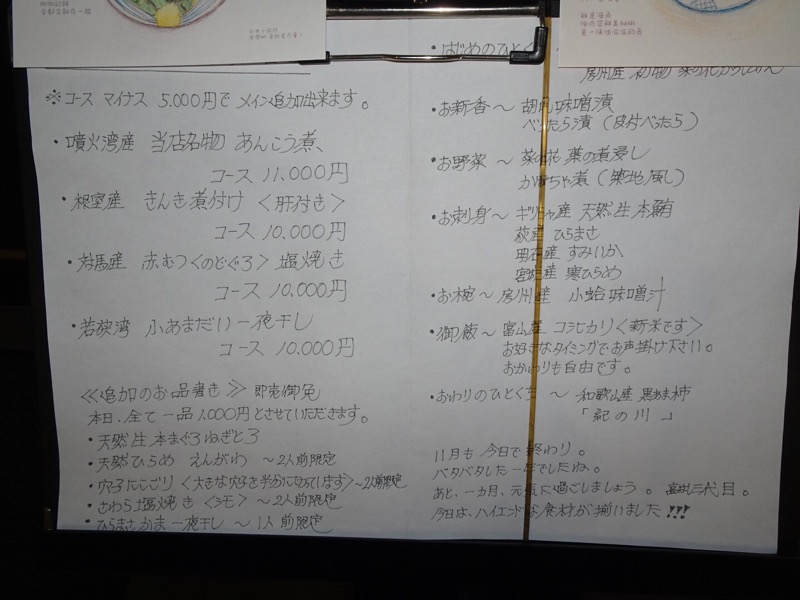 ※コース マイナス 5.000円で メイン追加出来ます。
・噴火湾産 当店名物 あんこう煮、
コース 11,000円
・根室産 きんき煮付け〈肝付き〉
コース 10,000円
・対馬産 赤むつ〈のどぐろ〉塩焼き
コース 10,000円
・若狭湾 小あまだい一夜干し
コース 10,000円
≪追加のお品書き≫ 即売御免
本日、全て一品1,000円とさせていただきます。
・天然生本まぐろねぎとろ
・天然ひらめ えんがわ ～2人前限定
・穴子にこごり〈大きな穴子を半分に切っています〉～2人前限定
・さわら塩焼き〈シモ〉～2人前限定
・ひらまさかま一夜干し ～1人前限定
・はじめのひとくち
房州産 初物 菜の花からしあえ
・お新香～ 胡瓜味噌漬
べったら漬（皮付べったら）
・お野菜～ 菜の花 葉の煮浸し
かぼちゃ煮（築地風）
・お刺身～ ギリシャ産 天然生本鮪
萩産 ひらまさ
明石産 すみいか
宮城産 寒ひらめ
・お椀～ 房州産 小蛤味噌汁
・御飯～ 富山産 コシヒカリ〈新米です〉
お好きなタイミングでお声掛け下さい。
おかわりも自由です。
・おわりのひとくち～ 和歌山産 黒あま柿
「紀の川」
11月も 今日で終わり。
バタバタした一年でしたね。
あと、一カ月、元気に過ごしましょう。 三代目。
今日は、ハイエンドな食材が揃いました!!!